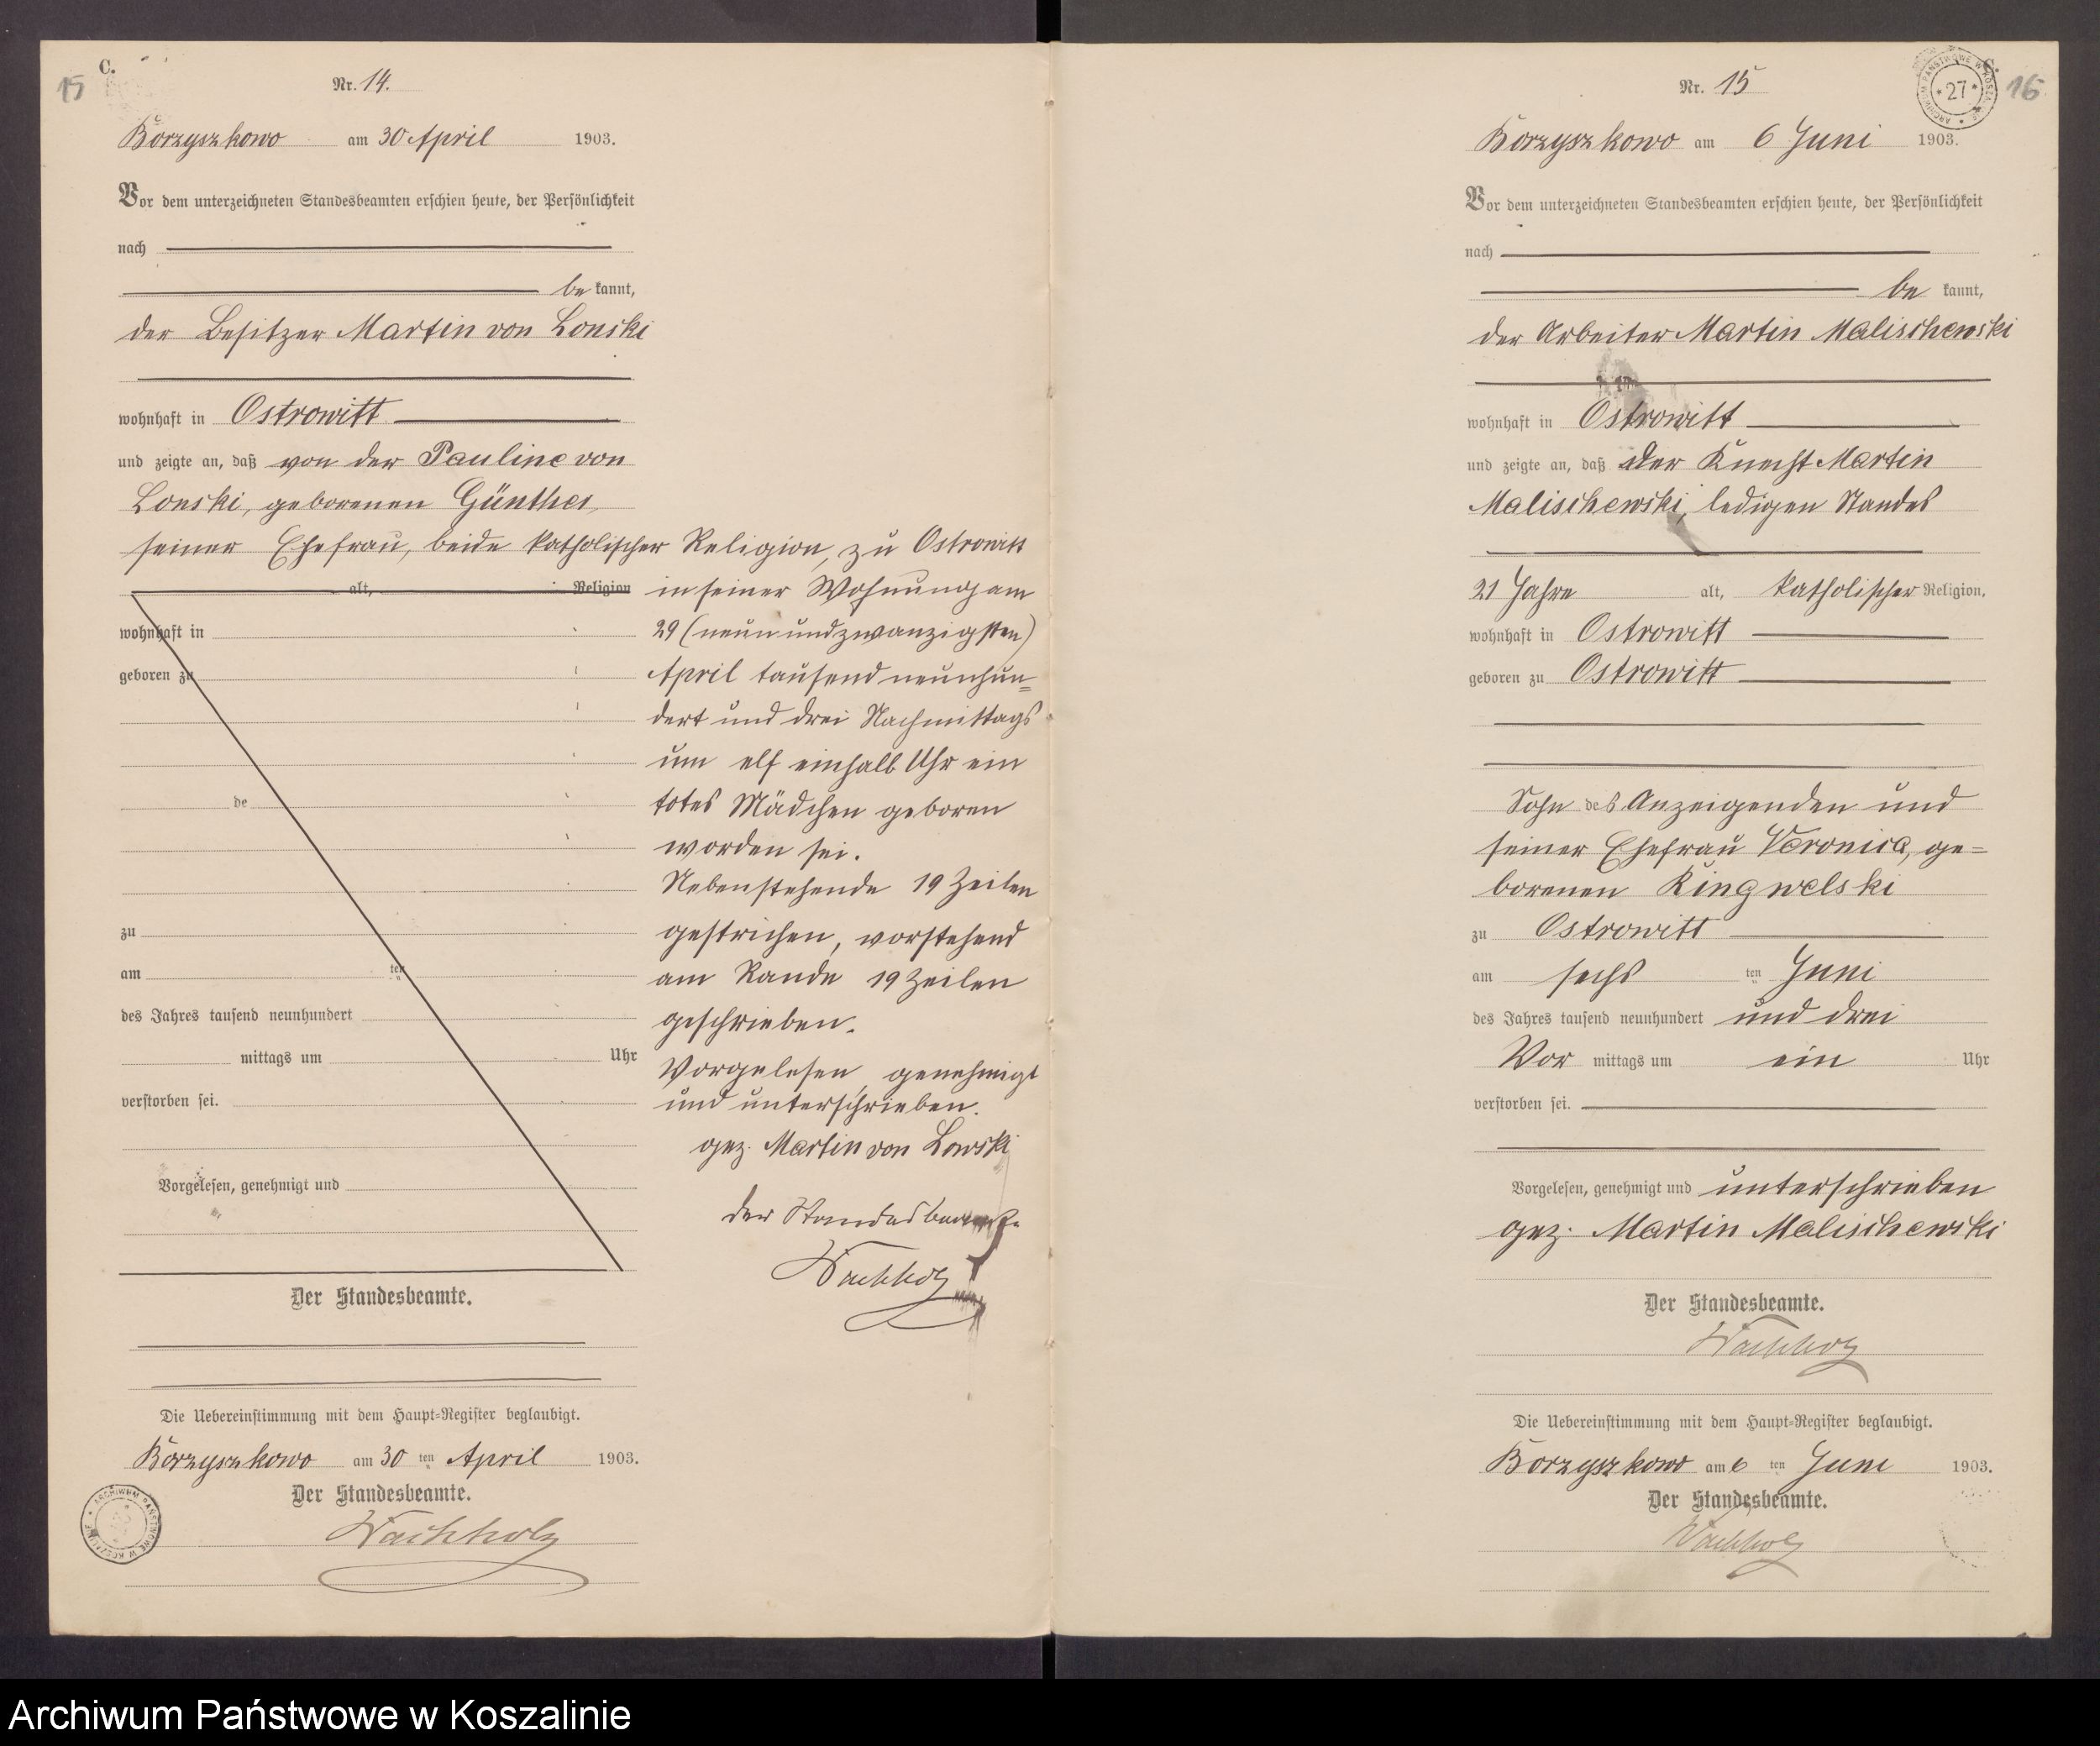 C.
15
Nr. 14.
Borzyszkowo am 30 April 1903.
Vor dem unterzeichneten Standesbeamten erschien heute, der Persönlichkeit
nach
be kannt,
der Besitzer Martin von Lonski
wohnhaft in Ostrowitt
und zeigte an, daß von der Pauline von
Lonski, geborenen Günther,
seiner Ehefrau, beide katholischer Religion, zu Ostrowitt
alt, Religion
in seiner Wohnung am
wohnhaft in
29 (neunundzwanzigsten)
geboren zu
April tausend neunhun=
dert und drei Nachmittags
um elf einhalb Uhr ein
de
totes Mädchen geboren
worden sei.
Nebenstehende 19 Zeilen
zu
gestrichen, vorstehend
am ten
am Rande 19 Zeilen
des Jahres tausend neunhundert
geschrieben.
mittags um Uhr
Vorgelesen, genehmigt
verstorben sei.
und unterschrieben.
gez. Martin von Lonski
Vorgelesen, genehmigt und
der Standesbeamte
Wachholz
Der Standesbeamte.
Die Uebereinstimmung mit dem Haupt-Register beglaubigt.
Borzyszkowo am 30 ten April 1903.
Der Standesbeamte.
Wachholz
ARCHIWUM PAŃSTWOWE W KOSZALINIE
Nr. 15
ARCHIWUM PAŃSTWOWE W KOSZALINIE
27
16
Borzyszkowo am 6 Juni 1903.
Vor dem unterzeichneten Standesbeamten erschien heute, der Persönlichkeit
nach
be kannt,
der Arbeiter Martin Malischewski
wohnhaft in Ostrowitt
und zeigte an, daß der Knecht Martin
Malischewski, ledigen Standes
21 Jahre alt, katholischer Religion,
wohnhaft in Ostrowitt
geboren zu Ostrowitt
Sohn des Anzeigenden und
seiner Ehefrau Veronica, ge=
borenen Kingwelski
zu Ostrowitt
am sechs ten Juni
des Jahres tausend neunhundert und drei
Vor mittags um ein Uhr
verstorben sei.
Vorgelesen, genehmigt und unterschrieben
gez. Martin Malischewski
Der Standesbeamte.
Wachholz
Die Uebereinstimmung mit dem Haupt-Register beglaubigt.
Borzyszkowo am 6 ten Juni 1903.
Der Standesbeamte.
Wachholz
Archiwum Państwowe w Koszalinie